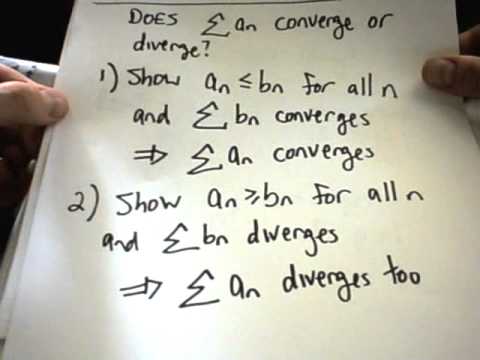 DOES ∑ an converge or
diverge?
1) Show an ≤ bn for all n
and ∑ bn converges
⇒ ∑ an converges
2) Show an ≥ bn for all n
and ∑ bn diverges
⇒ ∑ an diverges too